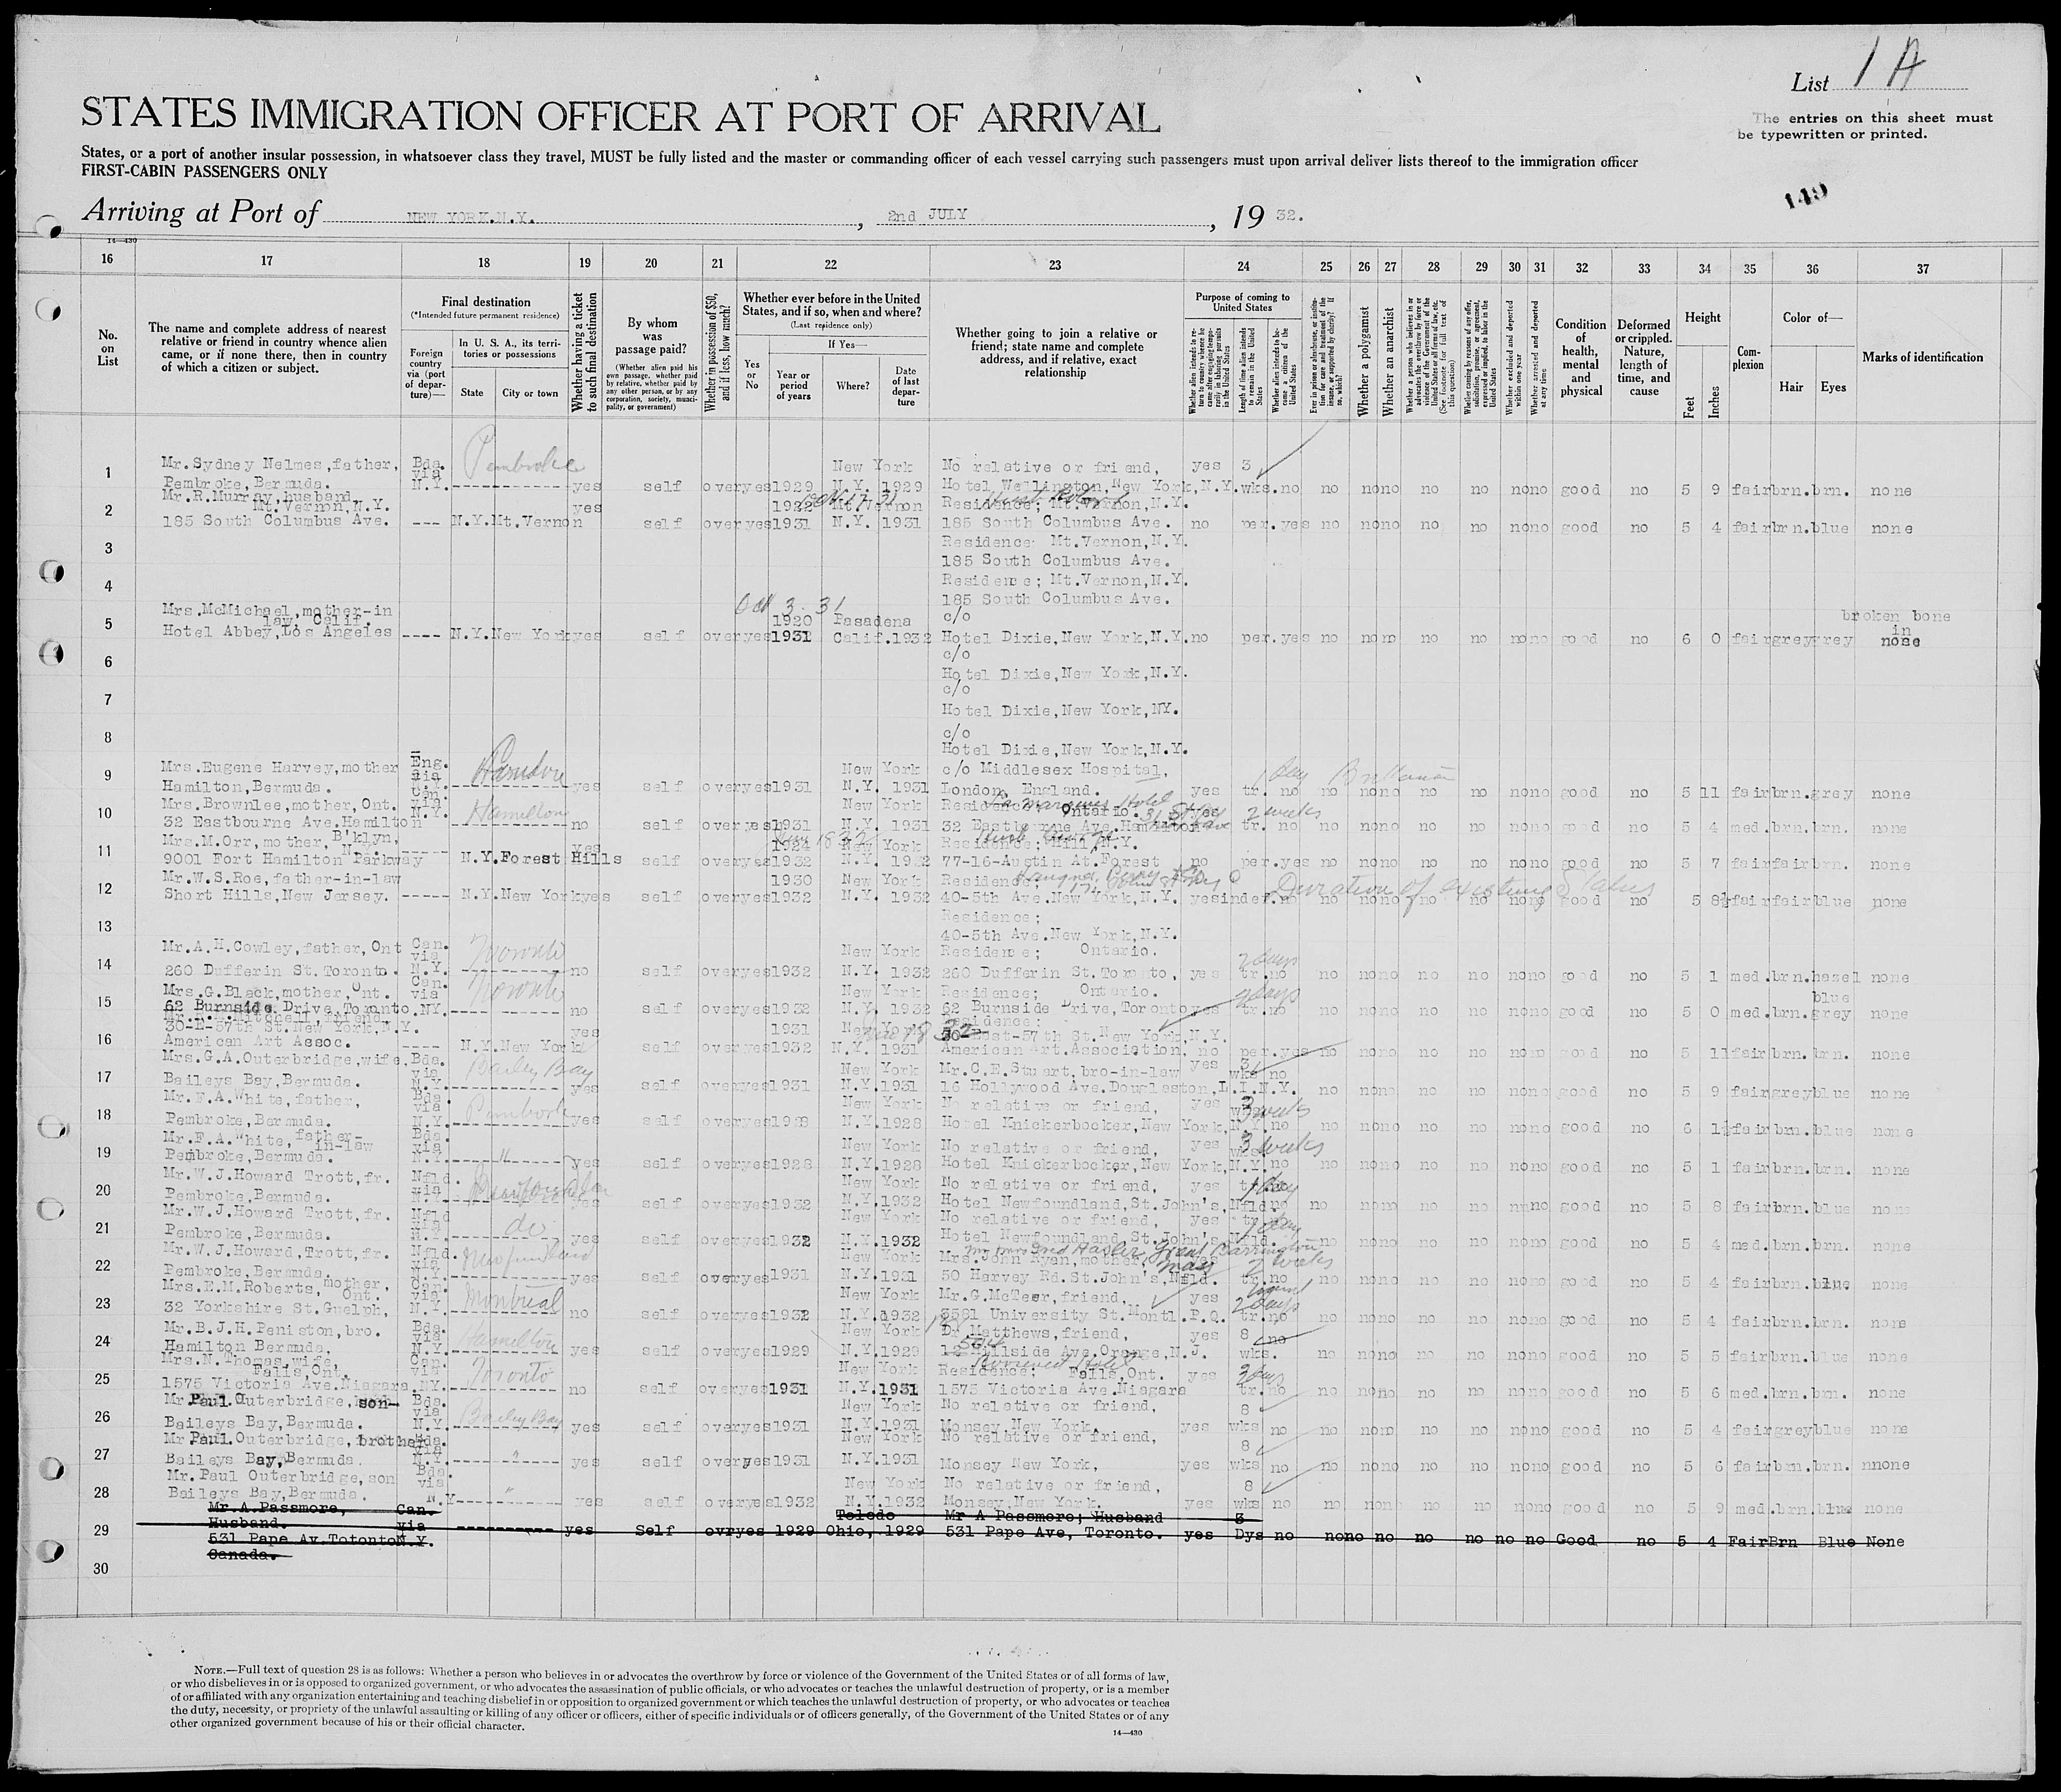 List 1 A
STATES IMMIGRATION OFFICER AT PORT OF ARRIVAL
The entries on this sheet must
be typewritten or printed.
States, or a port of another insular possession, in whatsoever class they travel, MUST be fully listed and the master or commanding officer of each vessel carrying such passengers must upon arrival deliver lists thereof to the immigration officer
FIRST-CABIN PASSENGERS ONLY
149
Arriving at Port of NEW YORK.N.Y. , 2nd JULY , 19 32.
14—430
16 17 18 19 20 21 22 23 24 25 26 27 28 29 30 31 32 33 34 35 36 37
No. on List
The name and complete address of nearest relative or friend in country whence alien came, or if none there, then in country of which a citizen or subject.
Final destination
(*Intended future permanent residence)
Foreign country via (port of departure)—
In U. S. A., its territories or possessions
State
City or town
Whether having a ticket to such final destination
By whom was passage paid?
(Whether alien paid his own passage, whether paid by relative, whether paid by any other person, or by any corporation, society, municipality, or government)
Whether in possession of $50, and if less, how much?
Whether ever before in the United States, and if so, when and where?
(Last residence only)
Yes or No
If Yes—
Year or period of years
Where?
Date of last departure
Whether going to join a relative or friend; state name and complete address, and if relative, exact relationship
Purpose of coming to United States
Whether alien intends to return to country whence he came after engaging temporarily in laboring pursuits in the United States
Length of time alien intends to remain in the United States
Whether alien intends to become a citizen of the United States
Ever in prison or almshouse, or institution for care and treatment of the insane, or supported by charity? If so, which?
Whether a polygamist
Whether an anarchist
Whether a person who believes in or advocates the overthrow by force or violence of the Government of the United States or all forms of law, etc. (See footnote for full text of this question)
Whether coming by reasons of any offer, solicitation, promise, or agreement, expressed or implied, to labor in the United States
Whether excluded and deported within one year
Whether arrested and deported at any time
Condition of health, mental and physical
Deformed or crippled. Nature, length of time, and cause
Height
Feet
Inches
Complexion
Color of—
Hair
Eyes
Marks of identification
1 Mr.Sydney Nelmes,father, Bda. via Pembroke New York No relative or friend, yes 3
Pembroke,Bermuda. N.Y. yes self over yes 1929 N.Y. 1929 Hotel Wellington,New York,N.Y. wks. no no no no no no no no good no 5 9 fair brn. brn. none
2 Mr.R.Murray,husband, Mt.Vernon,N.Y. yes 1922 Mt.Vernon Residence; Mt.Vernon,N.Y.
185 South Columbus Ave. --- N.Y. Mt.Vernon self over yes 1931 N.Y. 1931 185 South Columbus Ave. no per. yes no no no no no no no good no 5 4 fair brn. blue none
3 Residence: Mt.Vernon,N.Y.
185 South Columbus Ave.
4 Residence; Mt.Vernon,N.Y.
185 South Columbus Ave.
Oct 3. 31
5 Mrs.McMichael,mother-in law, Calif. 1920 Pasadena c/o broken bone in
Hotel Abbey,Los Angeles ---- N.Y. New York yes self over yes 1931 Calif. 1932 Hotel Dixie,New York,N.Y. no per. yes no no no no no no no good no 6 0 fair grey grey nose
6 c/o
Hotel Dixie,New York,N.Y.
7 c/o
Hotel Dixie,New York,NY.
8 c/o
Hotel Dixie,New York,N.Y.
9 Mrs.Eugene Harvey,mother Eng. via New York c/o Middlesex Hospital, 1 day
Hamilton,Bermuda. yes self over yes 1931 N.Y. 1931 London, England. yes tr. no no no no no no no no good no 5 11 fair brn. grey none
10 Mrs.Brownlee,mother, Ont. Can. via N.Y. Hamilton New York Residence; Ontario. yes 2 weeks
32 Eastbourne Ave.Hamilton no self over yes 1931 N.Y. 1931 32 Eastbourne Ave.Hamilton tr. no no no no no no no no good no 5 4 med. brn. brn. none
11 Mrs.M.Orr,mother, B'klyn, N.Y. yes 1924 New York Residence; Hill,N.Y.
9001 Fort Hamilton Parkway N.Y. Forest Hills self over yes 1932 N.Y. 1932 77-16-Austin At.Forest no per. yes no no no no no no no good no 5 7 fair fair brn. none
12 Mr.W.S.Roe,father-in-law 1930 New York Residence; Duration of existing Status
Short Hills,New Jersey. ----- N.Y. New York yes self over yes 1932 N.Y. 1932 40-5th Ave.New York,N.Y. yes indef. no no no no no no no no good no 5 8½ fair fair blue none
13 Residence;
40-5th Ave.New York,N.Y.
14 Mr.A.H.Cowley,father,Ont Can. via Toronto New York Residence; Ontario. 2 days
260 Dufferin St.Toronto. N.Y. no self over yes 1932 N.Y. 1932 260 Dufferin St.Toronto, yes tr. no no no no no no no no good no 5 1 med. brn. hazel none
15 Mrs.G.Black,mother,Ont. Can. via Toronto New York Residence; Ontario. 2 days blue
62 Burnside Drive,Toronto. NY. no self over yes 1932 N.Y. 1932 62 Burnside Drive,Toronto yes tr. no no no no no no no no good no 5 0 med. brn. grey none
16 30-E-57th St.New York,N.Y. yes 1931 New York Residence; 30 East-57th St.New York,N.Y.
American Art Assoc. ---- N.Y. New York self over yes 1932 N.Y. 1931 American Art.Association, no per. yes no no no no no no no good no 5 11 fair brn. brn. none
17 Mrs.G.A.Outerbridge,wife, Bda. via Bailey Bay New York Mr.C.E.Stuart,bro-in-law yes 3 wks no
Baileys Bay,Bermuda. N.Y. yes self over yes 1931 N.Y. 1931 16 Hollywood Ave.Douglaston,L.I.N.Y. no no no no no no no good no 5 9 fair grey blue none
18 Mr.F.A.White,father, Bda. via New York No relative or friend, yes 3 weeks
Pembroke,Bermuda. N.Y. yes self over yes 1928 N.Y. 1928 Hotel Knickerbocker,New York,N.Y. no no no no no no no no good no 6 1½ fair brn. blue none
19 Mr.F.A.White, father-in-law Bda. via " New York No relative or friend, yes 3 weeks
Pembroke,Bermuda. N.Y. yes self over yes 1928 N.Y. 1928 Hotel Knickerbocker,New York,N.Y. no no no no no no no no good no 5 1 fair brn. brn. none
20 Mr.W.J.Howard Trott,fr. Nfld. via New York No relative or friend, yes 1 day
Pembroke,Bermuda. N.Y. yes self over yes 1932 N.Y. 1932 Hotel Newfoundland,St.John's,Nfld. no no no no no no no no good no 5 8 fair brn. blue none
21 Mr.W.J.Howard Trott,fr. Nfld via do New York No relative or friend, yes tr. 1 day
Pembroke,Bermuda. N.Y. yes self over yes 1932 N.Y. 1932 Hotel Newfoundland,St.John's,Nfld. no no no no no no no good no 5 4 med. brn. brn. none
22 Mr.W.J.Howard,Trott,fr. Nfld. via Newfoundland New York Mrs.John Ryan,mother, Great Barrington Mass 2 weeks
Pembroke,Bermuda. N.Y. yes self over yes 1931 N.Y. 1931 50 Harvey Rd.St.John's,Nfld. tr. no no no no no no no no good no 5 4 fair brn. blue none
23 Mrs.E.M.Roberts, mother, Ont. Can. via Montreal New York Mr.G.McTeer,friend, yes 2 days
32 Yorkshire St.Guelph, N.Y. no self over yes 1932 N.Y. 1932 3581 University St.Montl.P.Q. tr. no no no no no no no no good no 5 4 fair brn. brn. none
24 Mr.B.J.H.Peniston,bro. Bda. via Hamilton New York Dr.Matthews,friend, yes 8 no
Hamilton Bermuda, N.Y. yes self over yes 1929 N.Y. 1929 Hillside Ave.Orange,N.J. wks. no no no no no no no good no 5 5 fair brn. blue none
25 Mrs.N.Thomas,wife, Falls,Ont. Can. via Toronto New York Residence; Falls,Ont. yes Roosevelt Hotel
1575 Victoria Ave.Niagara. NY. no self over yes 1931 N.Y. 1931 1575 Victoria Ave.Niagara tr. no no no no no no no no good no 5 6 med. brn. brn. none
26 Mr.Paul.Outerbridge, son- Bda. via Bailey Bay New York No relative or friend, 8
Baileys Bay,Bermuda. N.Y. yes self over yes 1931 N.Y. 1931 Monsey,New York. yes wks no no no no no no no no good no 5 4 fair grey blue none
27 Mr Paul.Outerbridge,brother Bda. via " New York No relative or friend, 8
Baileys Bay,Bermuda. N.Y. yes self over yes 1931 N.Y. 1931 Monsey New York, yes wks no no no no no no no no good no 5 6 fair brn. brn. nnone
28 Mr.Paul Outerbridge,son Bda. via " New York No relative or friend, 8
Baileys Bay,Bermuda. N.Y yes self over yes 1932 N.Y. 1932 Monsey,New York. yes wks no no no no no no no no good no 5 9 med. brn. blue none
29 Mr.A.Passmore, Can. Toledo Mr A Passmore; Husband 3
Husband. via yes Self ovr yes 1929 Ohio, 1929 531 Pape Ave, Toronto. yes Dys no no no no no no no no Good no 5 4 Fair Brn Blue None
531 Pape Av.Totonto N.Y.
Canada.
30
NOTE.—Full text of question 28 is as follows: Whether a person who believes in or advocates the overthrow by force or violence of the Government of the United States or of all forms of law,
or who disbelieves in or is opposed to organized government, or who advocates the assassination of public officials, or who advocates or teaches the unlawful destruction of property, or is a member
of or affiliated with any organization entertaining and teaching disbelief in or opposition to organized government or which teaches the unlawful destruction of property, or who advocates or teaches
the duty, necessity, or propriety of the unlawful assaulting or killing of any officer or officers, either of specific individuals or of officers generally, of the Government of the United States or of any
other organized government because of his or their official character.
14—430